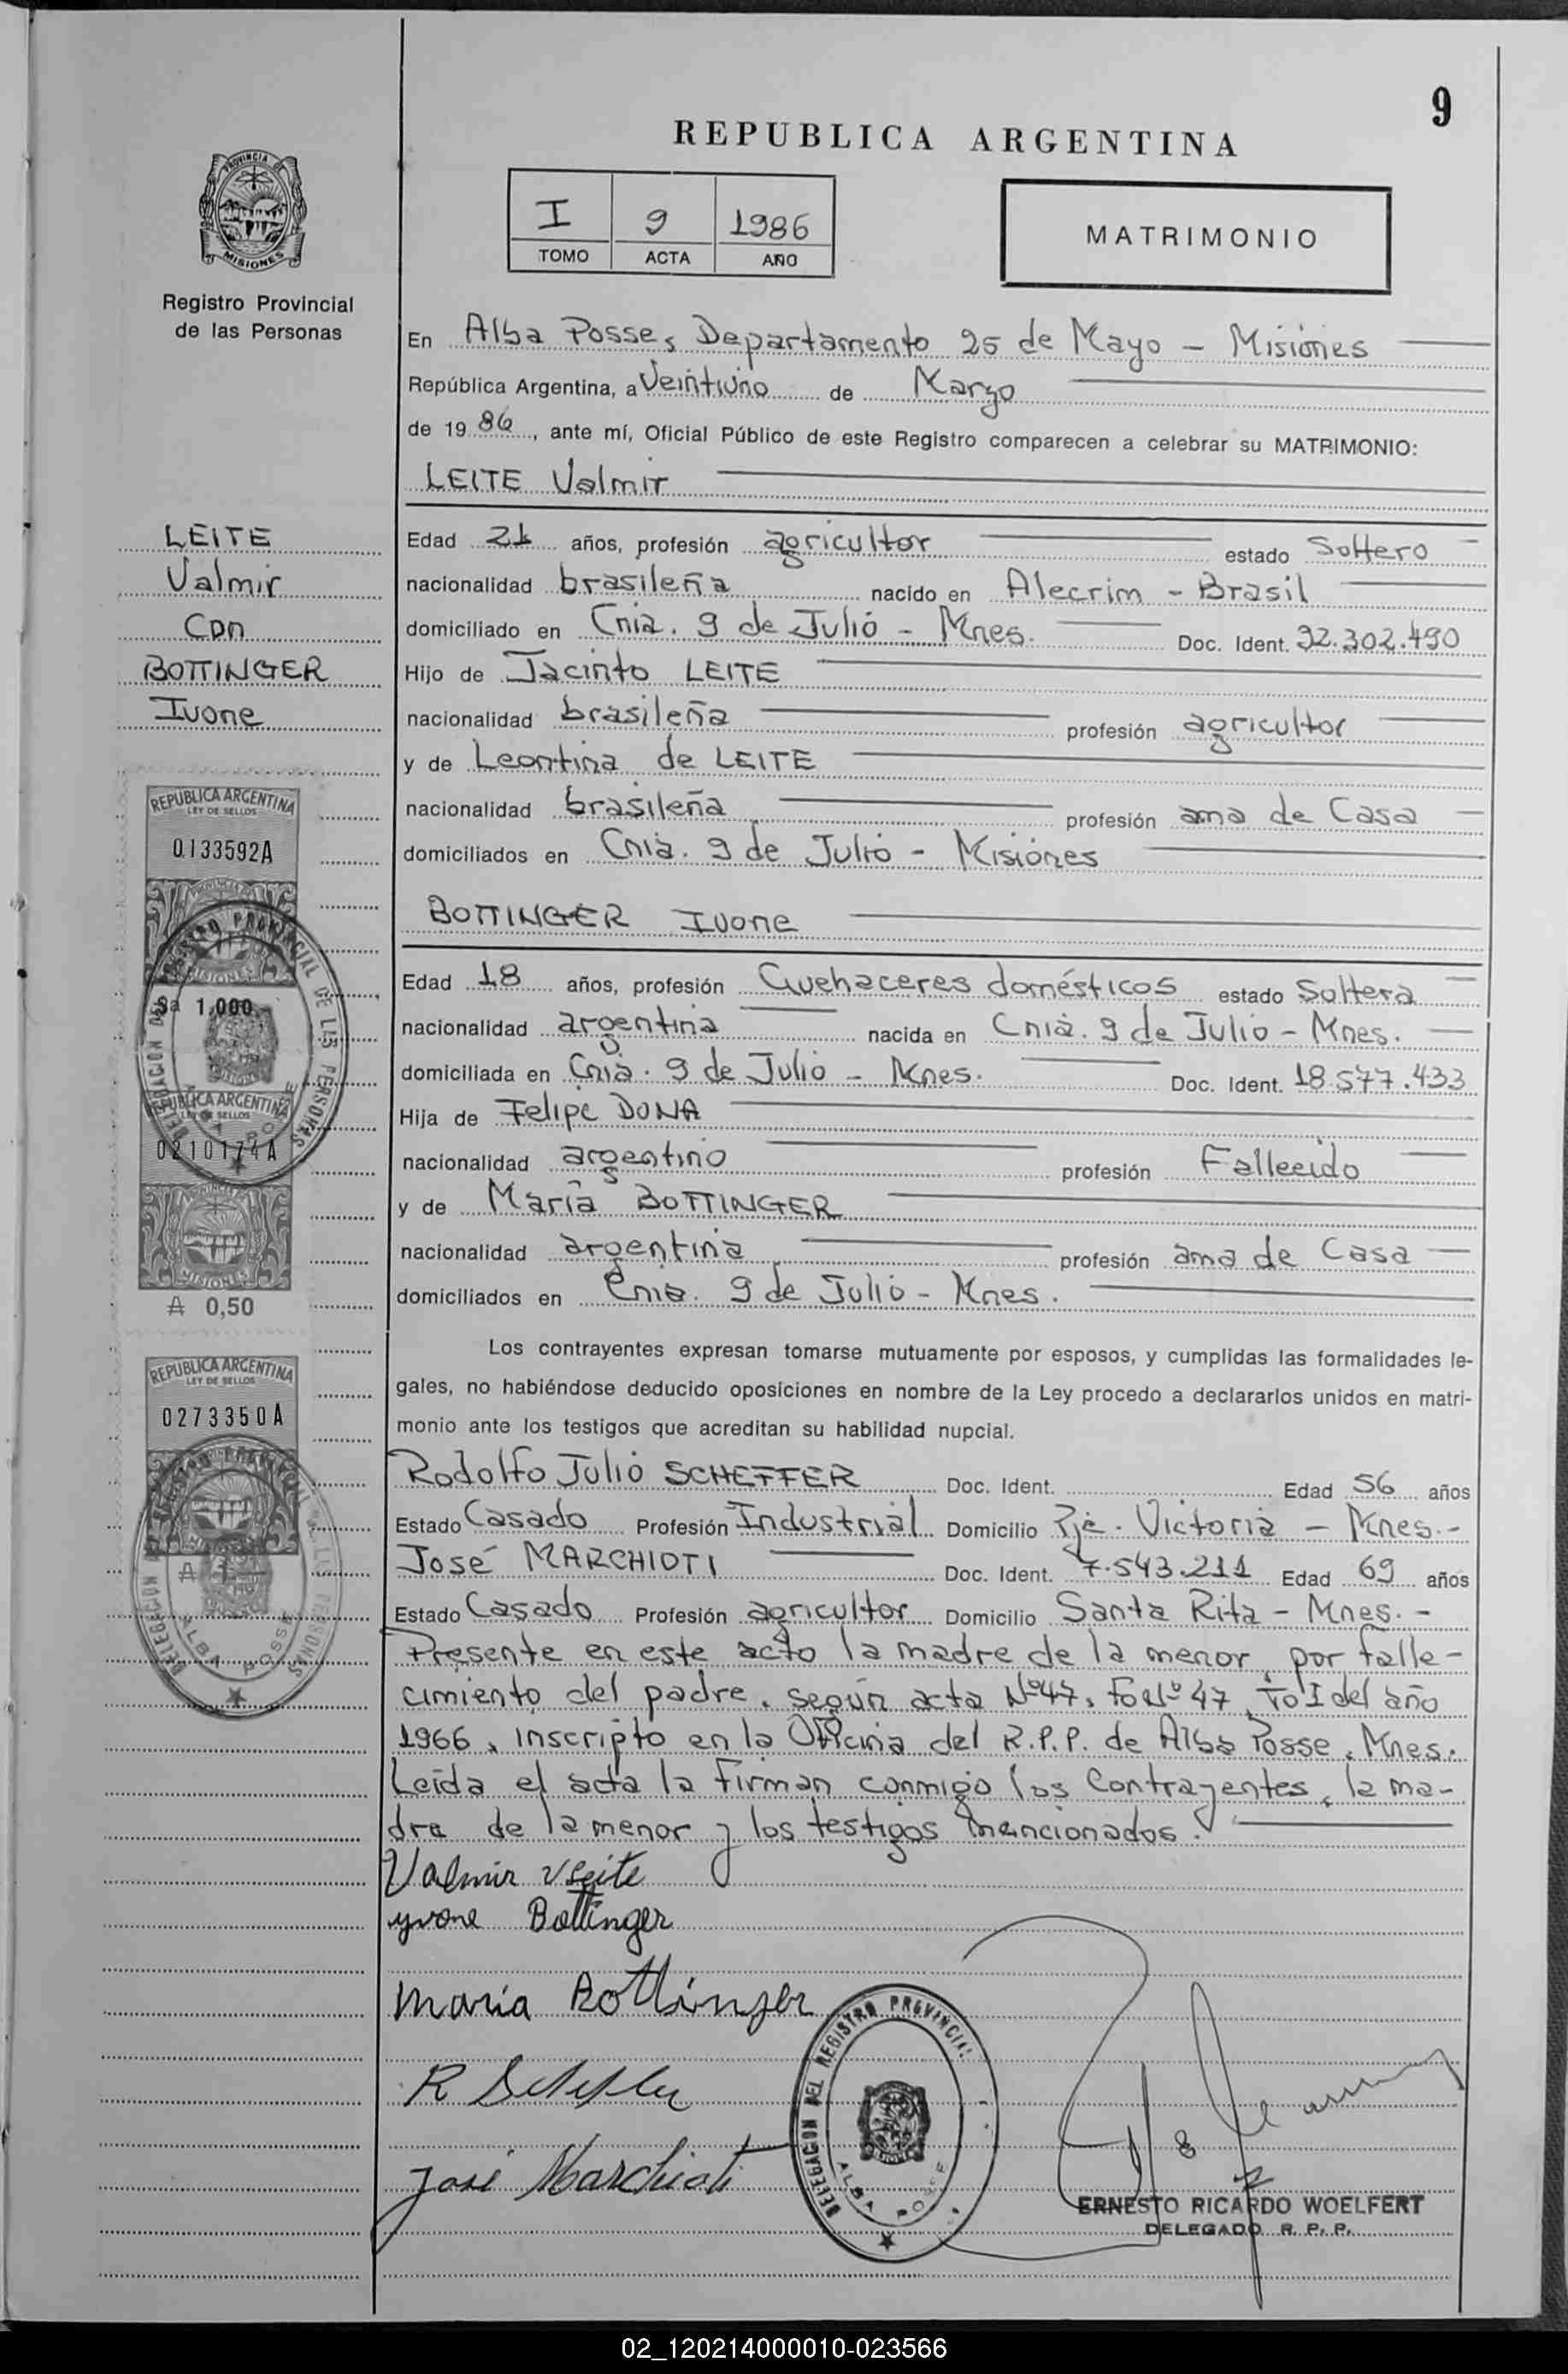 9
REPUBLICA ARGENTINA
I 9 1986
TOMO ACTA AÑO
MATRIMONIO
PROVINCIA DE
MISIONES
Registro Provincial
de las Personas
En Alba Posse, Departamento 25 de Mayo - Misiones
República Argentina, a Veintiuno de Marzo
de 1986, ante mí, Oficial Público de este Registro comparecen a celebrar su MATRIMONIO:
LEITE Valmir
LEITE
Valmir
Con
BOTTINGER
Ivone
Edad 21 años, profesión agricultor estado Soltero
nacionalidad brasileña nacido en Alecrim - Brasil
domiciliado en Cnia. 9 de Julio - Mnes. Doc. Ident. 92.302.490
Hijo de Jacinto LEITE
nacionalidad brasileña profesión agricultor
y de Leontina de LEITE
nacionalidad brasileña profesión ama de Casa
domiciliados en Cnia. 9 de Julio - Misiones
BOTTINGER Ivone
Edad 18 años, profesión Quehaceres domésticos estado Soltera
nacionalidad argentina nacida en Cnia. 9 de Julio - Mnes.
domiciliada en Cnia. 9 de Julio - Mnes. Doc. Ident. 18.577.433
Hija de Felipe DONA
nacionalidad argentino profesión Fallecido
y de María BOTTINGER
nacionalidad argentina profesión ama de Casa
domiciliados en Cnia. 9 de Julio - Mnes.
REPUBLICA ARGENTINA
LEY DE SELLOS
0133592A
MISIONES
1,000.-
DELEGACION DEL REGISTRO PROVINCIAL DE LAS PERSONAS
REPUBLICA ARGENTINA
LEY DE SELLOS
0210174A
MISIONES
A 0,50
REPUBLICA ARGENTINA
LEY DE SELLOS
0273350A
DELEGACION DEL REGISTRO PROVINCIAL DE LAS PERSONAS
ALBA POSSE
Los contrayentes expresan tomarse mutuamente por esposos, y cumplidas las formalidades le-
gales, no habiéndose deducido oposiciones en nombre de la Ley procedo a declararlos unidos en matri-
monio ante los testigos que acreditan su habilidad nupcial.
Rodolfo Julio SCHEFFER Doc. Ident. Edad 56 años
Estado Casado Profesión Industrial Domicilio Pje. Victoria - Mnes.-
José MARCHIOTI Doc. Ident. 7.543.211 Edad 69 años
Estado Casado Profesión agricultor Domicilio Santa Rita - Mnes. -
Presente en este acto la madre de la menor, por falle-
cimiento del padre, según acta Nº47, Fo Nº 47, Tº I del año
1966, inscripto en la Oficina del R.P.P. de Alba Posse, Mnes.
Leída el acta la firman conmigo los Contrayentes, la ma-
dre de la menor y los testigos mencionados.
Valmir Leite
yvone Bottinger
maria Bottinger
R Scheffer
José Marchioti
DELEGACION DEL REGISTRO PROVINCIAL
ALBA POSSE
ERNESTO RICARDO WOELFERT
DELEGADO R. P. P.
02_120214000010-023566